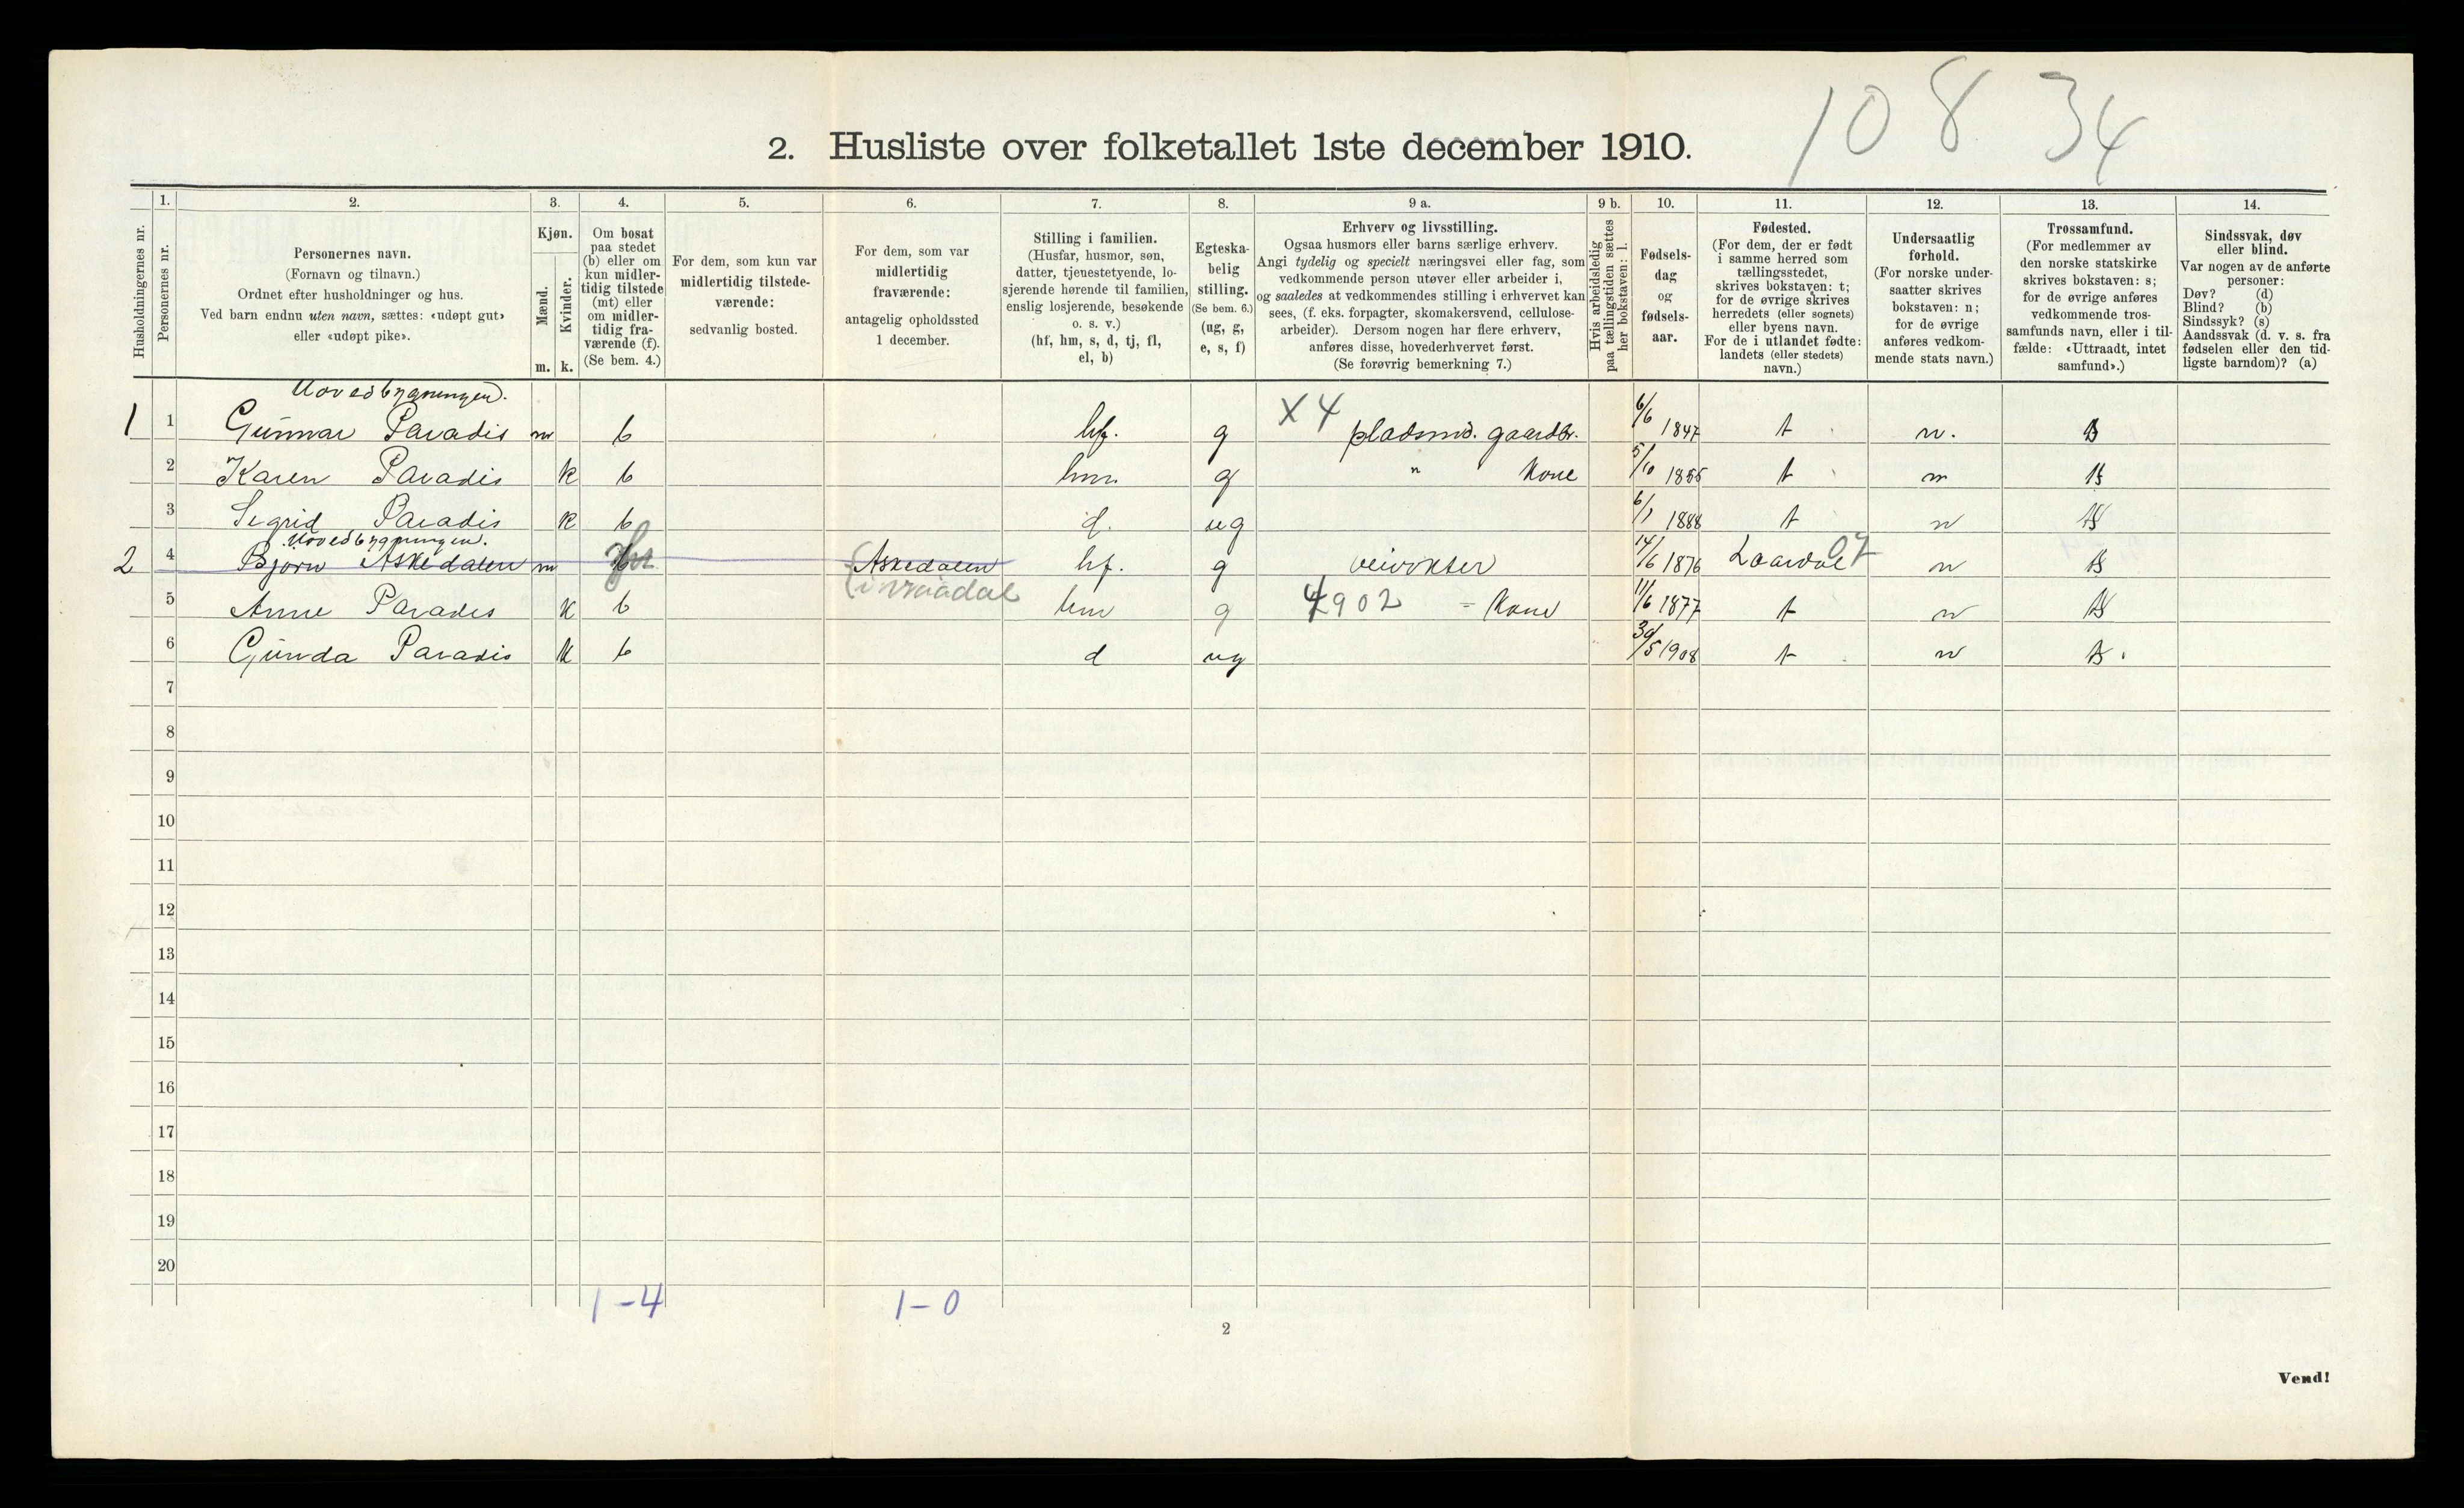 10834
2. Husliste over folketallet 1ste december 1910.
Husholdningernes nr.
1. Personernes nr.
2. Personernes navn.
(Fornavn og tilnavn.)
Ordnet efter husholdninger og hus.
Ved barn endnu uten navn, sættes: «udøpt gut»
eller «udøpt pike».
3. Kjøn.
Mænd. m.
Kvinder. k.
4. Om bosat
paa stedet
(b) eller om
kun midler-
tidig tilstede
(mt) eller
om midler-
tidig fra-
værende (f).
(Se bem. 4.)
5. For dem, som kun var
midlertidig tilstede-
værende:
sedvanlig bosted.
6. For dem, som var
midlertidig
fraværende:
antagelig opholdssted
1 december.
7. Stilling i familien.
(Husfar, husmor, søn,
datter, tjenestetyende, lo-
sjerende hørende til familien,
enslig losjerende, besøkende
o. s. v.)
(hf, hm, s, d, tj, fl,
el, b)
8. Egteska-
belig
stilling.
(Se bem. 6.)
(ug, g,
e, s, f)
9 a. Erhverv og livsstilling.
Ogsaa husmors eller barns særlige erhverv.
Angi tydelig og specielt næringsvei eller fag, som
vedkommende person utøver eller arbeider i,
og saaledes at vedkommendes stilling i erhvervet kan
sees, (f. eks. forpagter, skomakersvend, cellulose-
arbeider). Dersom nogen har flere erhverv,
anføres disse, hovederhvervet først.
(Se forøvrig bemerkning 7.)
9 b. Hvis arbeidsledig
paa tællingstiden sættes
her bokstaven: l.
10. Fødsels-
dag
og
fødsels-
aar.
11. Fødested.
(For dem, der er født
i samme herred som
tællingsstedet,
skrives bokstaven: t;
for de øvrige skrives
herredets (eller sognets)
eller byens navn.
For de i utlandet fødte:
landets (eller stedets)
navn.)
12. Undersaatlig
forhold.
(For norske under-
saatter skrives
bokstaven: n;
for de øvrige
anføres vedkom-
mende stats navn.)
13. Trossamfund.
(For medlemmer av
den norske statskirke
skrives bokstaven: s;
for de øvrige anføres
vedkommende tros-
samfunds navn, eller i til-
fælde: «Uttraadt, intet
samfund».)
14. Sindssvak, døv
eller blind.
Var nogen av de anførte
personer:
Døv? (d)
Blind? (b)
Sindssyk? (s)
Aandssvak (d. v. s. fra
fødselen eller den tid-
ligste barndom)? (a)
Hovedbygningen.
1 1 Gunnar Paradis m b hf. g X4 pladsmd. gaardbr. 6/6 1847 t n. s
2 Karen Paradis k b hm g " Kone 5/10 1855 t n s
3 Sigrid Paradis k b d. ug 6/1 1888 t n s
Hovedbygningen.
2 4 Bjørn Askedalen m Askedalen hf. g veivokter 14/6 1876 Laardal 07 n s
5 Anne Paradis k b (i vraadal hm g 4902 = Kone 11/6 1877 t n s
6 Gunda Paradis k b d ug 30/5 1908 t n s.
7
8
9
10
11
12
13
14
15
16
17
18
19
20
1-4 1-0
2
Vend!